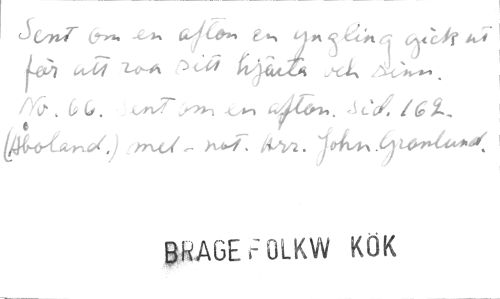 Sent om en afton en yngling gick ut
för att roa sitt hjärta och sinn.
No. 66. Sent om en afton. Sid. 162.
(Åboland.) mel-not. Arr. John. Granlund.
BRAGE FOLKW KÖK